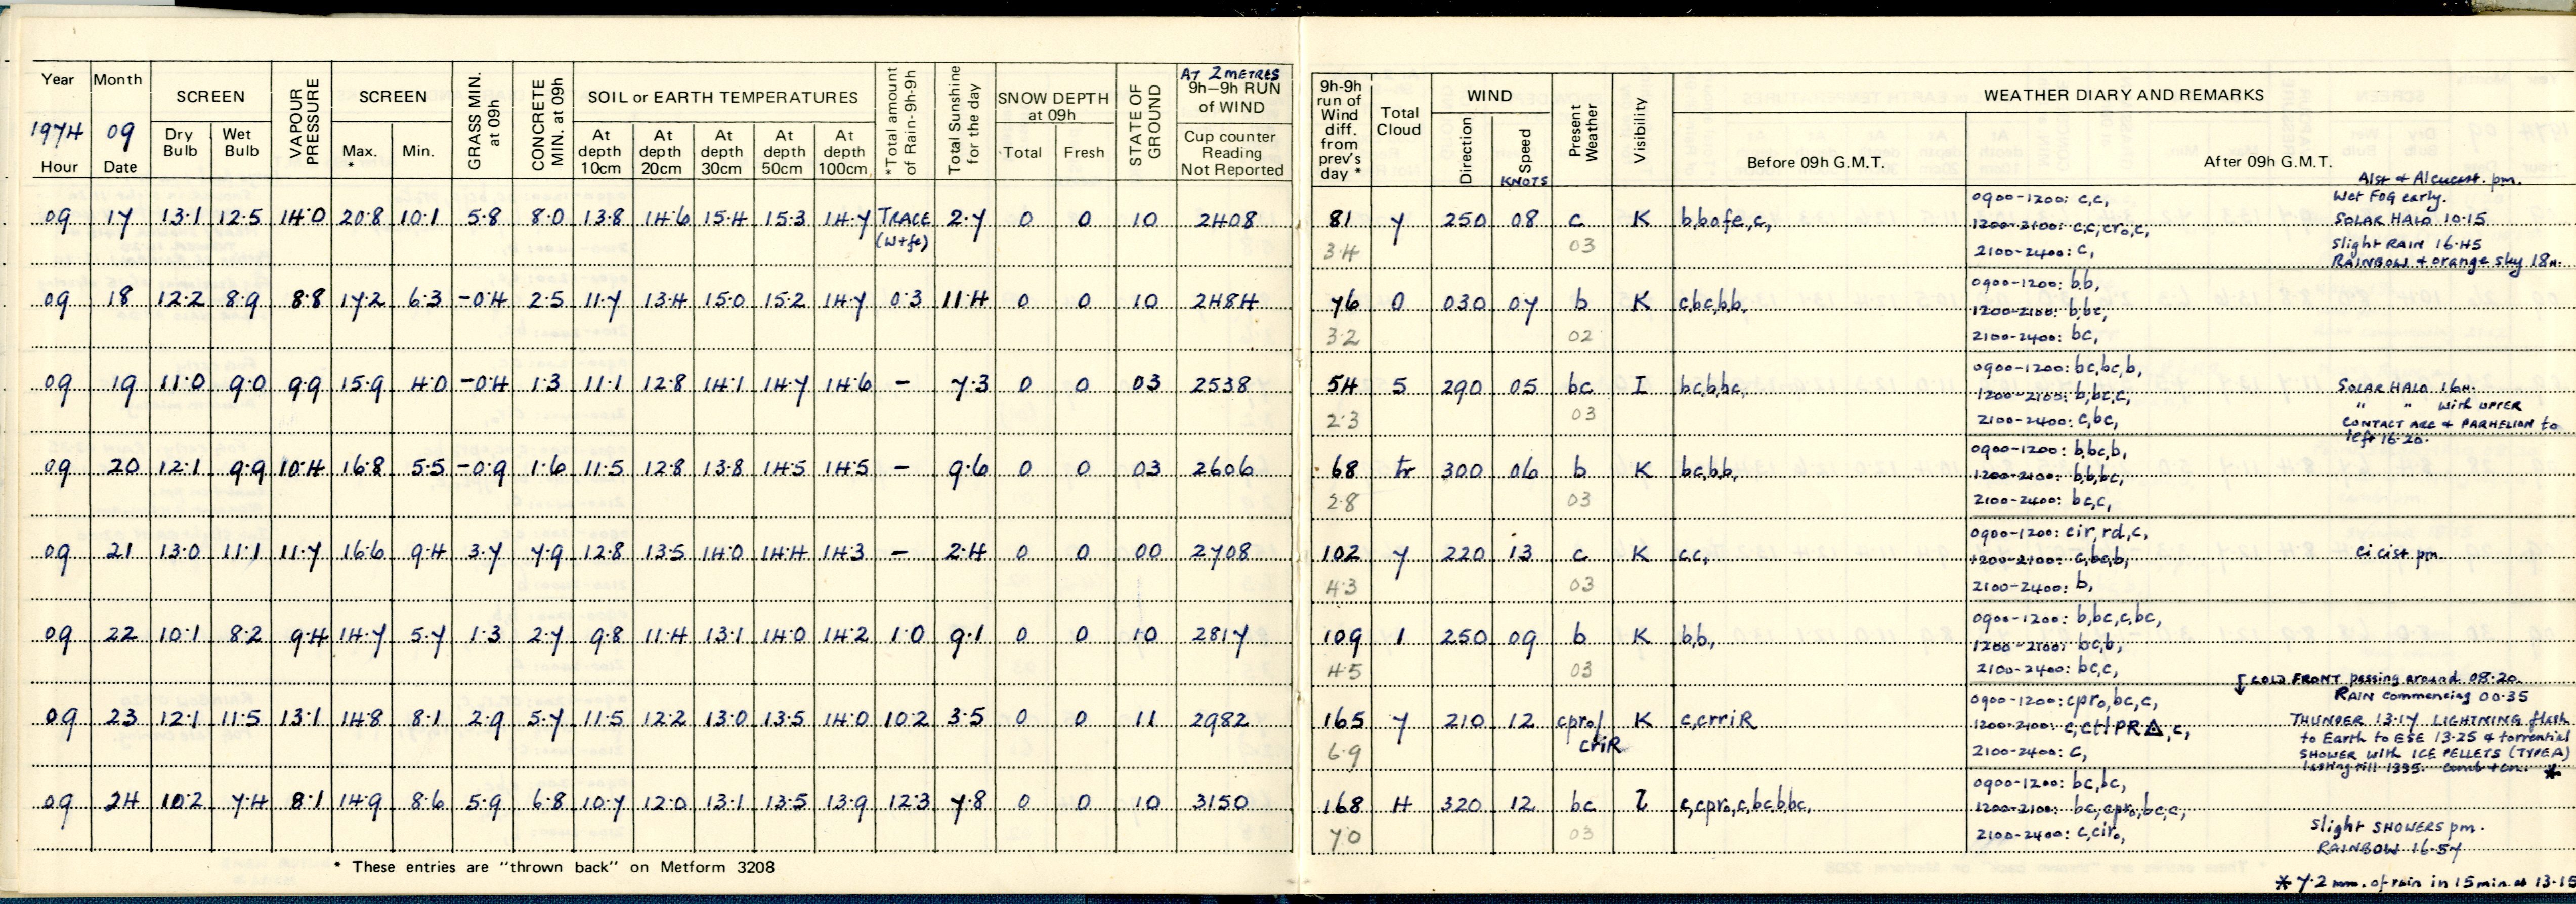 Year Month SCREEN VAPOUR PRESSURE SCREEN GRASS MIN. at 09h CONCRETE MIN. at 09h SOIL or EARTH TEMPERATURES *Total amount of Rain-9h-9h Total Sunshine for the day SNOW DEPTH at 09h STATE OF GROUND AT 2 METRES 9h-9h RUN of WIND
1974 09 Dry Bulb Wet Bulb Max. * Min. At depth 10cm At depth 20cm At depth 30cm At depth 50cm At depth 100cm Total Fresh Cup counter Reading Not Reported
Hour Date
09 17 13.1 12.5 14.0 20.8 10.1 5.8 8.0 13.8 14.6 15.4 15.3 14.7 TRACE (w+fe) 2.7 0 0 10 2408
09 18 12.2 8.9 8.8 17.2 6.3 -0.4 2.5 11.7 13.4 15.0 15.2 14.7 0.3 11.4 0 0 10 2484
09 19 11.0 9.0 9.9 15.9 4.0 -0.4 1.3 11.1 12.8 14.1 14.7 14.6 - 7.3 0 0 03 2538
09 20 12.1 9.9 10.4 16.8 5.5 -0.9 1.6 11.5 12.8 13.8 14.5 14.5 - 9.6 0 0 03 2606
09 21 13.0 11.1 11.7 16.6 9.4 3.7 7.9 12.8 13.5 14.0 14.4 14.3 - 2.4 0 0 00 2708
09 22 10.1 8.2 9.4 14.7 5.7 1.3 2.7 9.8 11.4 13.1 14.0 14.2 1.0 9.1 0 0 10 2817
09 23 12.1 11.5 13.1 14.8 8.1 2.9 5.7 11.5 12.2 13.0 13.5 14.0 10.2 3.5 0 0 11 2982
09 24 10.2 7.4 8.1 14.9 8.6 5.9 6.8 10.7 12.0 13.1 13.5 13.9 12.3 7.8 0 0 10 3150
* These entries are "thrown back" on Metform 3208
9h-9h run of Wind diff. from prev's day * Total Cloud WIND Present Weather Visibility WEATHER DIARY AND REMARKS
Direction Speed KNOTS Before 09h G.M.T. After 09h G.M.T.
Alst & Alcucast. pm.
0900-1200: c,c, Wet FOG early.
81 7 250 08 c K b,bofe,c, 1200-2100: c,c,cro,c, SOLAR HALO 10.15
3.4 03 2100-2400: c, Slight RAIN 16.45
RAINBOW & orange sky 18H.
0900-1200: b,b,
76 0 030 07 b K c,bc,b,b, 1200-2100: b,bc,
3.2 02 2100-2400: bc,
0900-1200: bc,bc,b,
54 5 290 05 bc I bc,b,bc, 1200-2100: b,bc,c, SOLAR HALO 16H.
" " With UPPER
2.3 03 2100-2400: c,bc, CONTACT ARC & PARHELION to
left 16.20.
0900-1200: b,bc,b,
68 tr 300 06 b K bc,b,b, 1200-2100: b,b,bc,
2.8 03 2100-2400: bc,c,
0900-1200: cir,rd,c,
102 7 220 13 c K c,c, 1200-2100: c,bc,b, Ci cist pm.
4.3 03 2100-2400: b,
0900-1200: b,bc,c,bc,
109 1 250 09 b K b,b, 1200-2100: bc,b,
4.5 03 2100-2400: bc,c,
COLD FRONT passing around 08.20.
0900-1200: cpro,bc,c, RAIN commencing 00.35
165 7 210 12 cpro/ criR K c,crriR 1200-2100: c,ctlPR△,c, THUNDER 13.17 LIGHTNING flash
to Earth to ESE 13.25 & torrential
6.9 2100-2400: c, SHOWER with ICE PELLETS (TYPE A)
lasting till 1335. *
0900-1200: bc,bc,
168 4 320 12 bc c,cpro,c,bc,b,bc, 1200-2100: bc,cpro,bc,c,
7.0 03 2100-2400: c,ciro, Slight SHOWERS pm.
RAINBOW 16.57
* 7.2 mm. of rain in 15 min. at 13.15